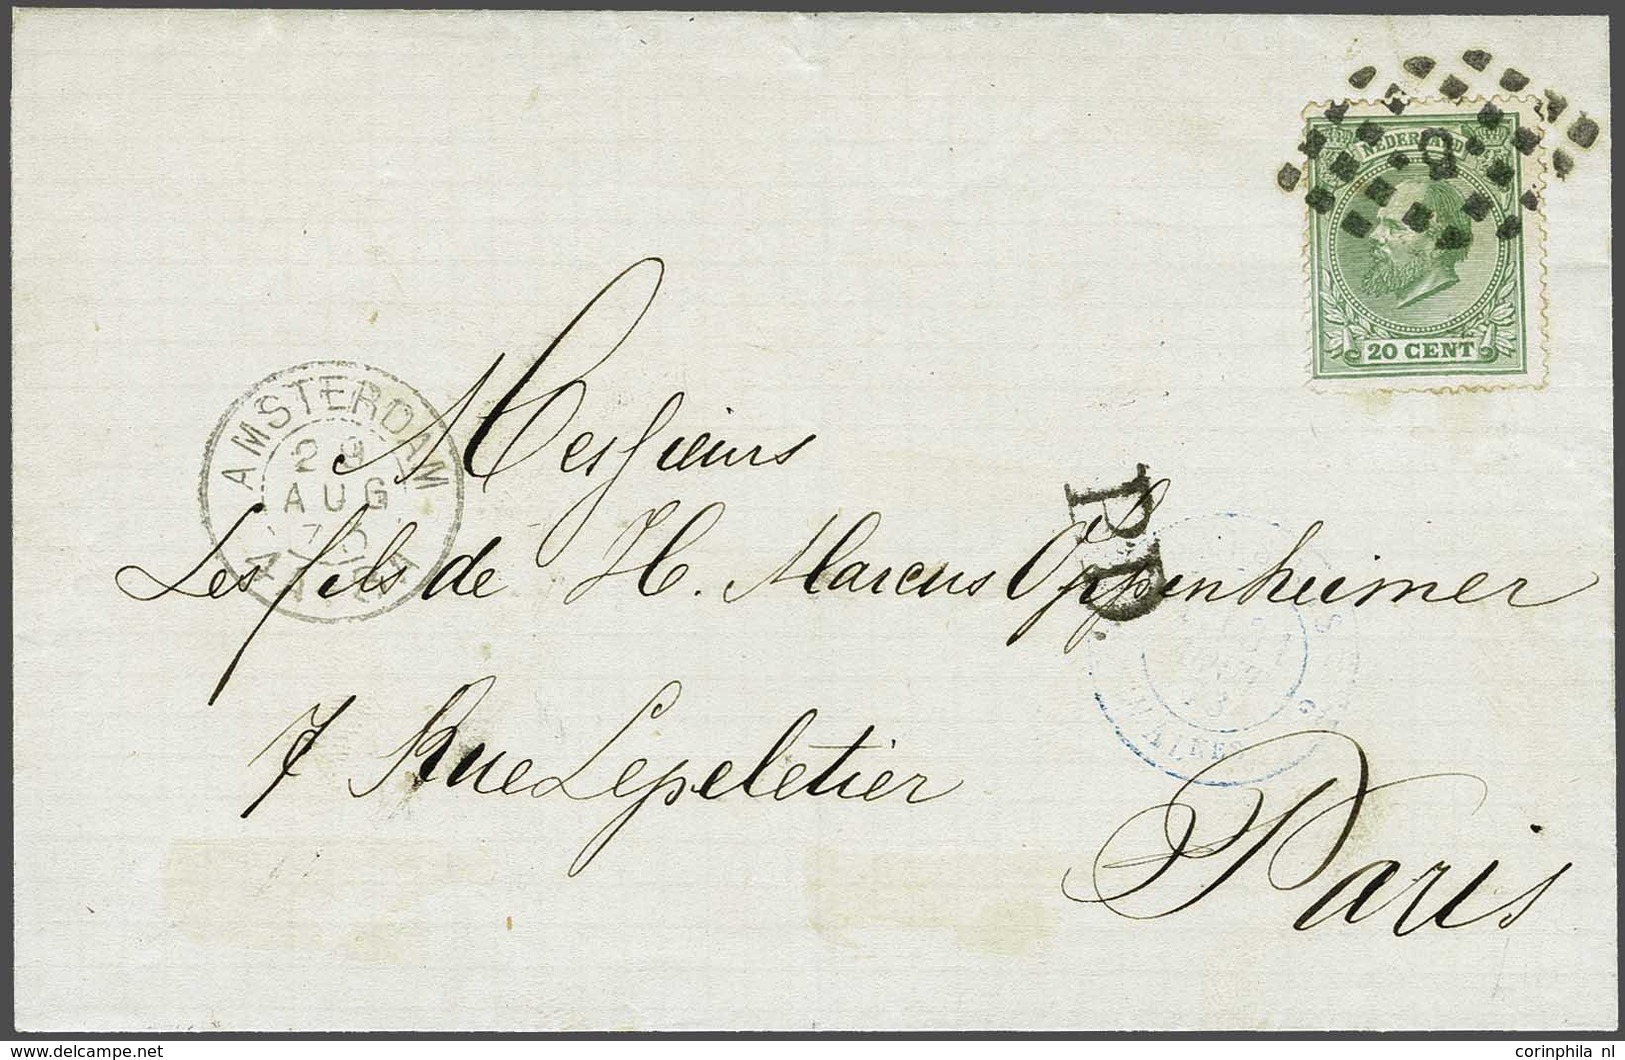 NEDERLAND
20 CENT
AMSTERDAM
29
AUG
Messieurs
Les fils de H. Marcus Oppenheimer
P.D.
7 Rue Lepeletier
Paris
corinphila nl